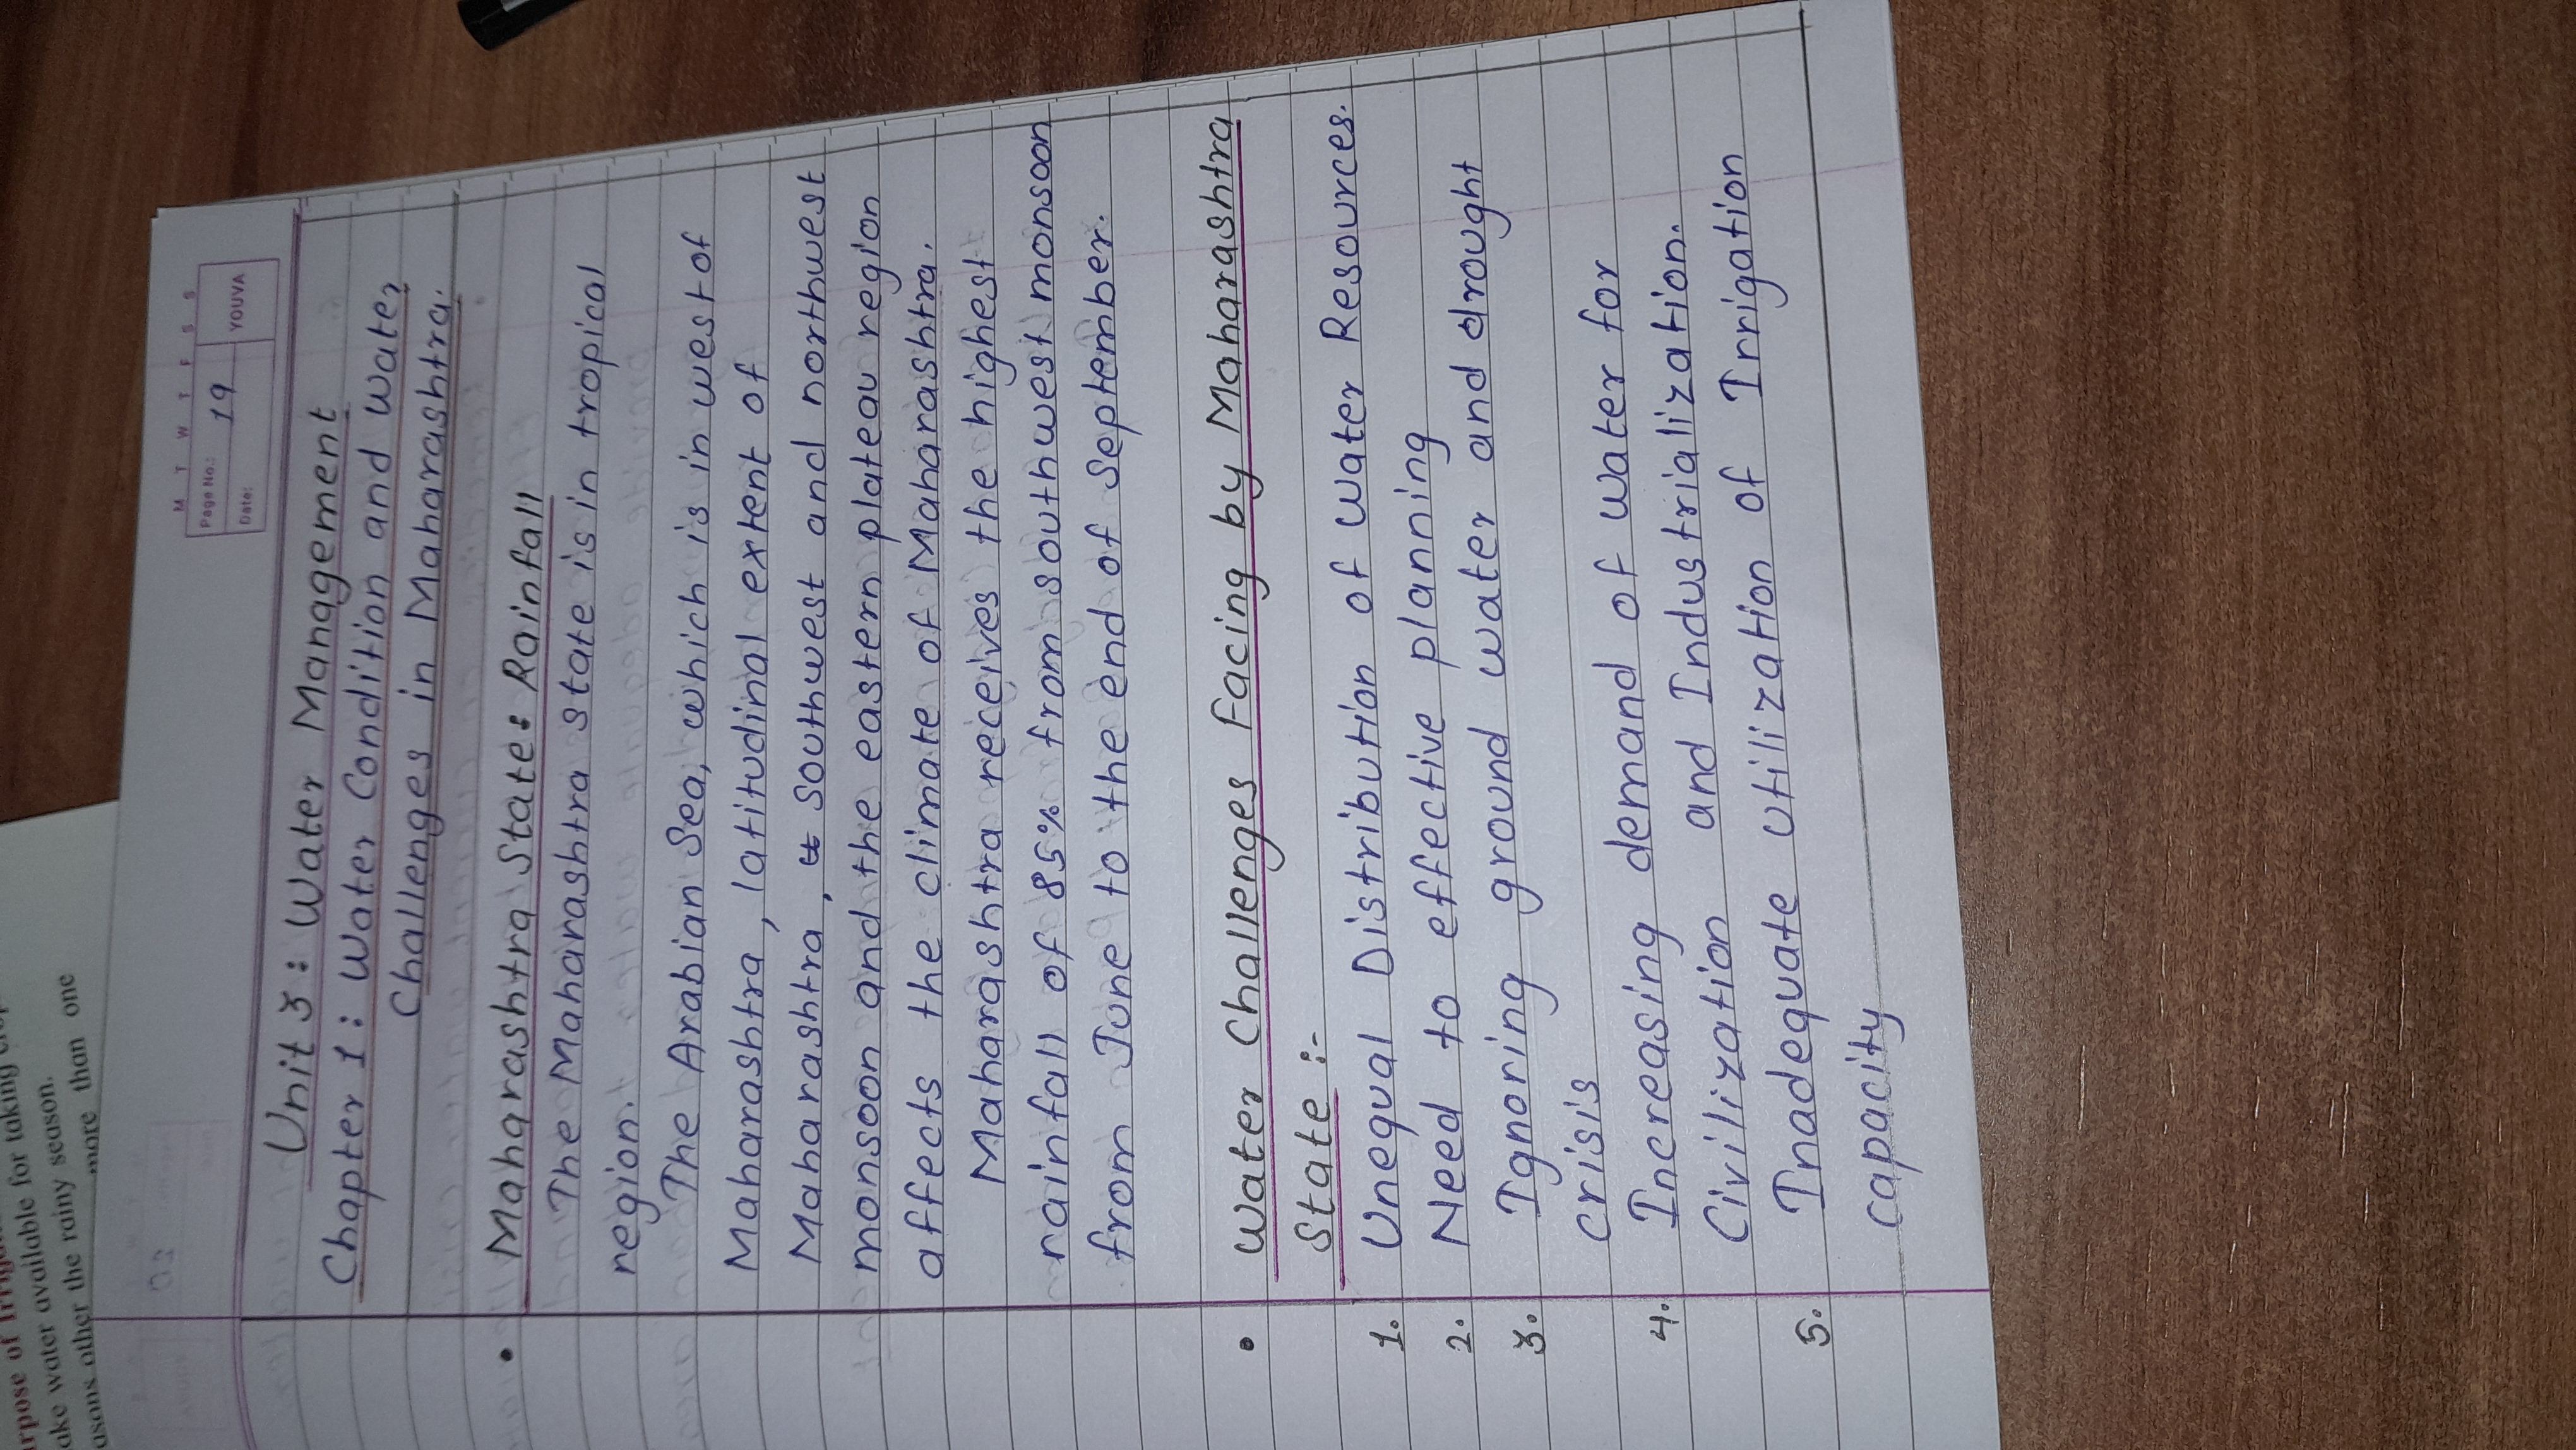 M T W T F S S
Page No.: 19
Date: YOUVA
Unit 3: Water Management
Chapter 1: Water Condition and Water
Challenges in Maharashtra.
• Maharashtra State: Rainfall
The Maharashtra state is in tropical
region.
The Arabian Sea, which is in west of
Maharashtra, latitudinal extent of
Maharashtra, southwest and northwest
monsoon and the eastern plateau region
affects the climate of Maharashtra.
Maharashtra receives the highest
rainfall of 85% from southwest monsoon
from June to the end of September.
• Water Challenges Facing by Maharashtra
State :-
1. Unequal Distribution of water Resources.
2. Need to effective planning
3. Ignoring ground water and drought
crisis
4. Increasing demand of water for
Civilization and Industrialization.
5. Inadequate utilization of Irrigation
capacity
rpose of
ake water available for taking
asons other the rainy season.
more than one